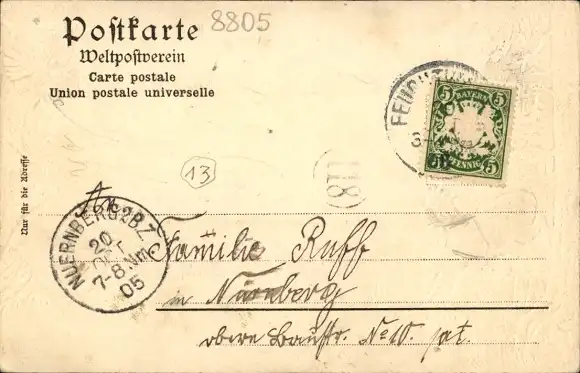 Postkarte
8805
Weltpostverein
Carte postale
Union postale universelle
BAYERN
5 5
5
PFENNIG
13
Nur für die Adresse
An
NUERNBERG 2 B.Z.
20
OCT
7-8 Nm.
05
Familie Ruff
in Nürnberg
obere Baustr. No 10. pt.